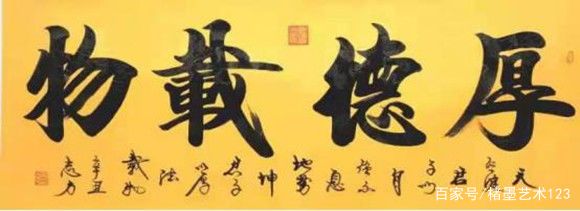 厚德載物
天行健君子以自强不息地势坤君子以厚德載物
辛丑志力
百家号/楮墨艺术123